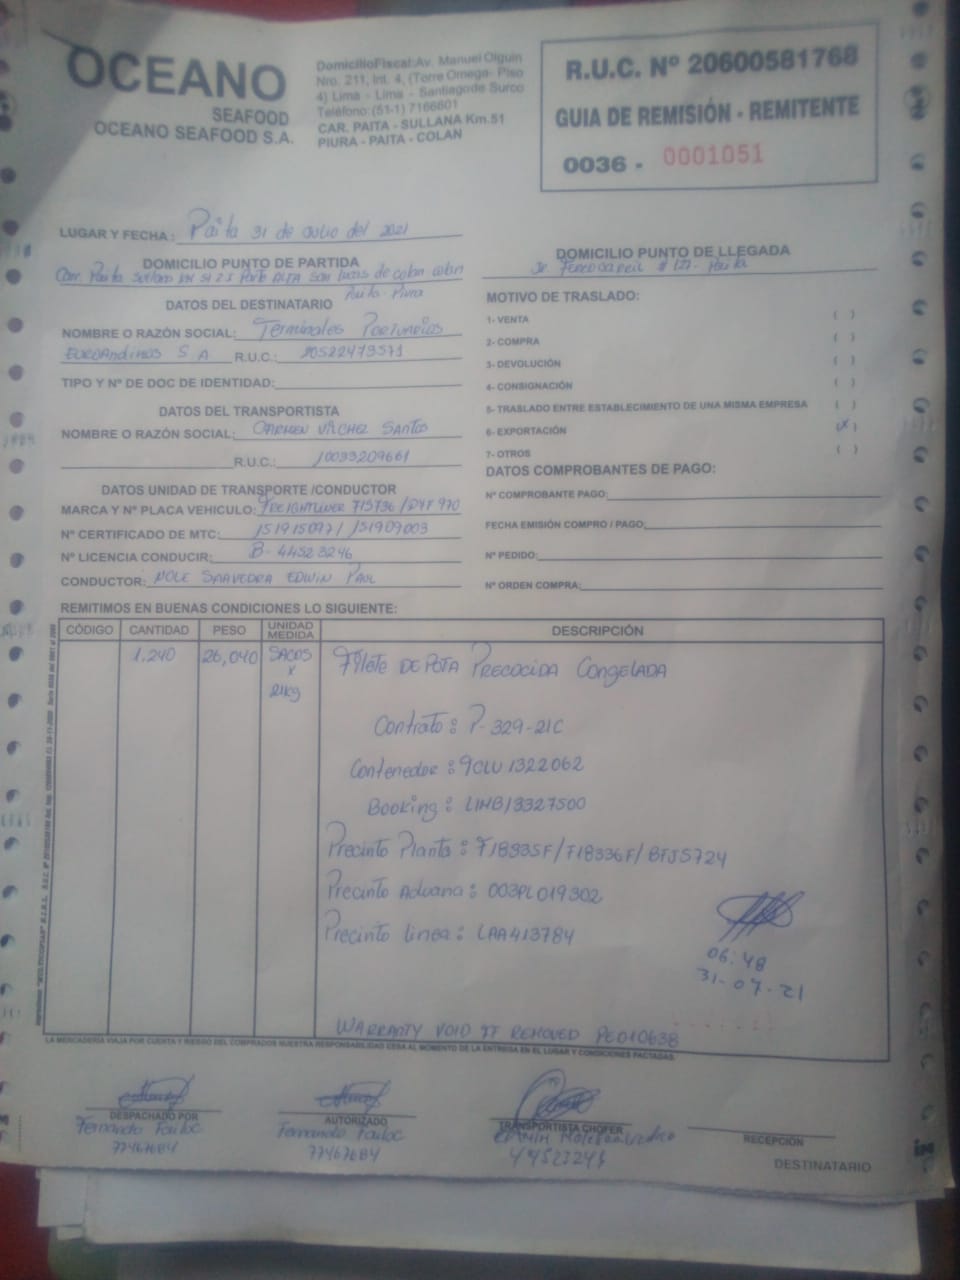 OCEANO
SEAFOOD
OCEANO SEAFOOD S.A.
DomicilioFiscal:Av. Manuel Olguin
Nro. 211, Int. 4, (Torre Omega- Piso
4) Lima - Lima - Santiagode Surco
Teléfono:(51-1) 7166601
CAR. PAITA - SULLANA Km.51
PIURA - PAITA - COLAN
R.U.C. Nº 20600581768
GUIA DE REMISIÓN - REMITENTE
0036 - 0001051
LUGAR Y FECHA: Paita 31 de Julio del 2021
DOMICILIO PUNTO DE PARTIDA
Carr. Paita Sullana KM 51 Parte ALTA San Lucas de colan colan
Paita - Piura
DOMICILIO PUNTO DE LLEGADA
Jr. Ferrocarril # 127 - Paita
DATOS DEL DESTINATARIO
NOMBRE O RAZÓN SOCIAL: Terminales Portuarios
EuroAndinos S A R.U.C.: 20522473571
TIPO Y Nº DE DOC DE IDENTIDAD:
DATOS DEL TRANSPORTISTA
NOMBRE O RAZÓN SOCIAL: CARMEN VILCHEZ SANTOS
R.U.C.: 10033209661
DATOS UNIDAD DE TRANSPORTE /CONDUCTOR
MARCA Y Nº PLACA VEHICULO: FREIGHTLINER
Nº CERTIFICADO DE MTC: 151915097 / 151909003
Nº LICENCIA CONDUCIR: B-44523246
CONDUCTOR: NOLE SAAVEDRA EDWIN PAUL
MOTIVO DE TRASLADO:
1- VENTA ( )
2- COMPRA ( )
3- DEVOLUCIÓN ( )
4- CONSIGNACIÓN ( )
5- TRASLADO ENTRE ESTABLECIMIENTO DE UNA MISMA EMPRESA ( )
6- EXPORTACIÓN (X)
7- OTROS ( )
DATOS COMPROBANTES DE PAGO:
Nº COMPROBANTE PAGO:
FECHA EMISIÓN COMPRO / PAGO:
Nº PEDIDO:
Nº ORDEN COMPRA:
REMITIMOS EN BUENAS CONDICIONES LO SIGUIENTE:
CÓDIGO CANTIDAD PESO UNIDAD MEDIDA DESCRIPCIÓN
1.240 26,040 SACOS x 21kg Filete DE POTA PRECOCIDA CONGELADA
Contrato: P-329-21C
Contenedor: 9CLU 1322062
Booking: LIMB13327500
Precinto Planta: F18335F / F18336F / BFJ5724
Precinto Aduana: 003PL019302
Precinto linea: LAA413784
06:48
31-07-21
WARRANTY VOID IF REMOVED PE010638
LA MERCADERÍA VIAJA POR CUENTA Y RIESGO DEL COMPRADOS NUESTRA RESPONSABILIDAD CESA AL MOMENTO DE LA ENTREGA EN EL LUGAR Y CONDICIONES PACTADAS.
DESPACHADO POR
Fernando Pailoc
77467684
AUTORIZADO
Fernando Pailoc
77467684
TRANSPORTISTA CHOFER
RECEPCIÓN
DESTINATARIO